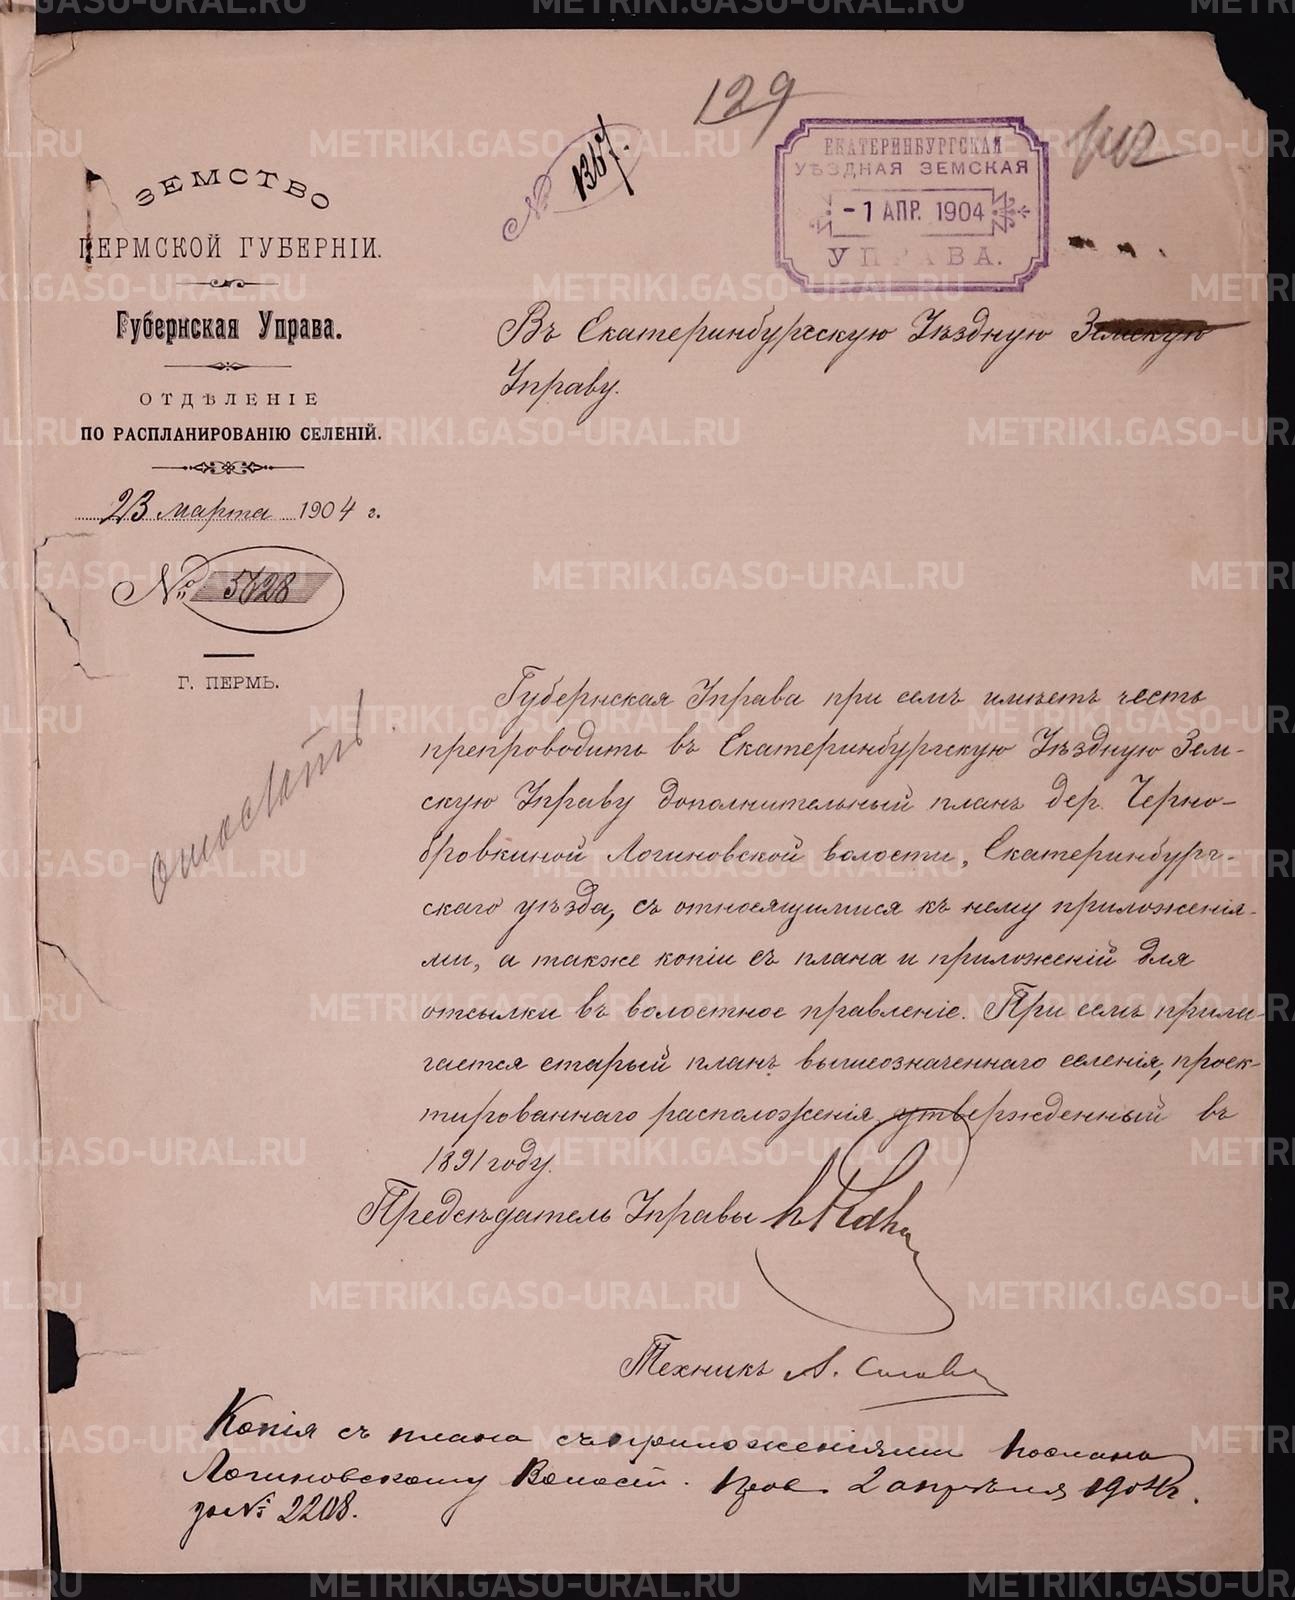 129
112
№ 1367.
ЕКАТЕРИНБУРГСКАЯ
УѢЗДНАЯ ЗЕМСКАЯ
-1 АПР. 1904
УПРАВА.
ЗЕМСТВО
ПЕРМСКОЙ ГУБЕРНІИ.
Губернская Управа.
ОТДѢЛЕНІЕ
ПО РАСПЛАНИРОВАНІЮ СЕЛЕНІЙ.
23 марта 1904 г.
№ 5628
Г. ПЕРМЬ.
Въ Екатеринбургскую Уѣздную Земскую
Управу.
Губернская Управа при семъ имѣетъ честь
препроводить въ Екатеринбургскую Уѣздную Зем-
скую Управу дополнительный планъ дер. Черно-
бровкиной Логиновской волости, Екатеринбург-
скаго уѣзда, съ относящимися къ нему приложенія-
ми, а также копіи съ плана и приложеній для
отсылки въ волостное правленіе. При семъ прила-
гается старый планъ вышеозначеннаго селенія, проек-
тированнаго расположенія, утвержденный въ
1891 году.
Предсѣдатель Управы
Техникъ А.
Копія съ плана съ приложеніями послана
Логиновскому Волост. прав. 2 апрѣля 1904 г.
за № 2208.
METRIKI.GASO-URAL.RU